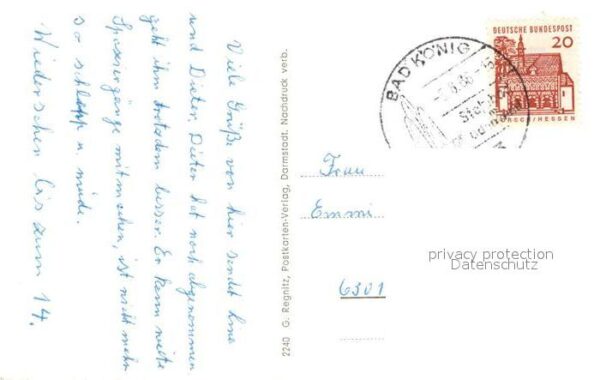 Viele Grüße von hier sendet Eine
und Dieter. Dieter hat noch abgenommen
geht ihm trotzdem besser. Er kann weite
Spaziergänge mitmachen, ist nicht mehr
so schlapp u. müde.
Wiedersehen bis zum 14.
2240 G. Regnitz, Postkarten-Verlag, Darmstadt. Nachdruck verb.
BAD KÖNIG
DEUTSCHE BUNDESPOST
20
LORSCH/HESSEN
Frau
Emmi
6301
privacy protection
Datenschutz